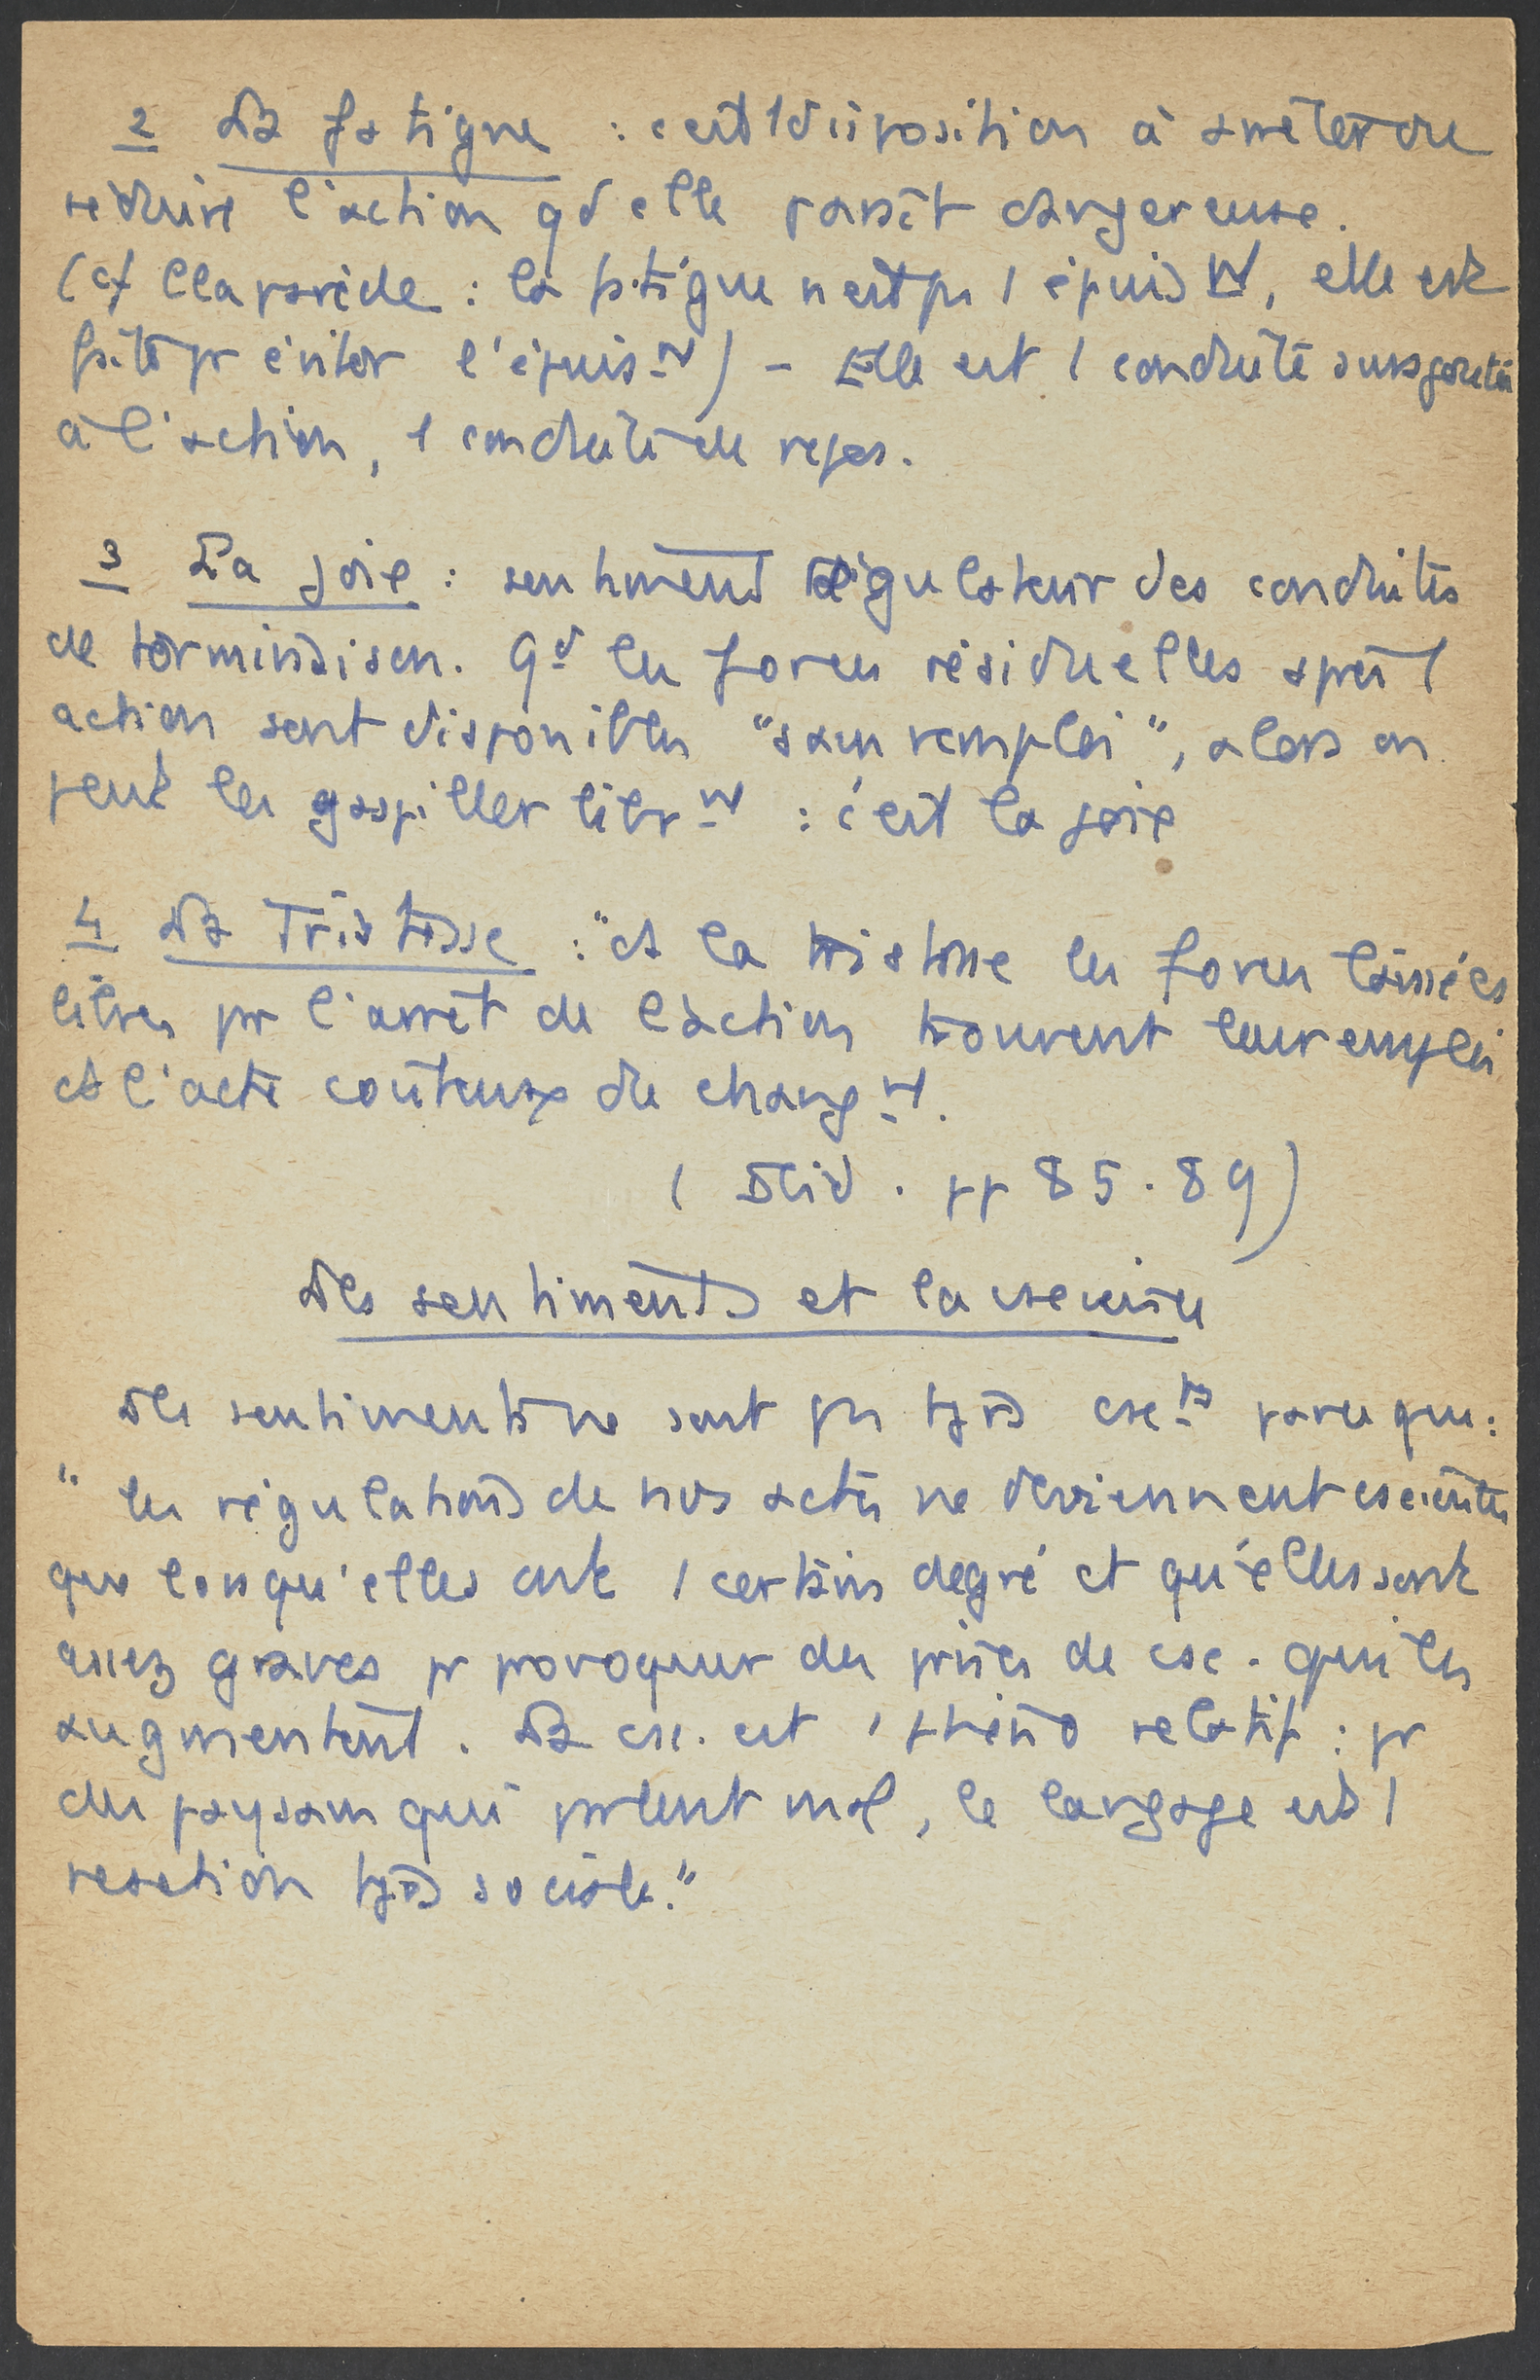 2 La fatigue : c'est 1 disposition à arrêter ou
réduire l'action qd elle paraît dangereuse.
(cf Claparède : la fatigue n'est pas 1 épuismt, elle est
faite pr éviter l'épuismt) - Elle est 1 conduite surajoutée
à l'action, 1 conduite de repos.
3 La joie : sentiment régulateur des conduites
de terminaison. Qd les forces résiduelles après l
action sont disponibles "sans remploi", alors on
peut les gaspiller librmt : c'est la joie
4 La Tristesse : "ds la tristesse les forces laissées
libres pr l'arrêt de l'action trouvent leur emploi
ds l'acte coûteux du changmt.
(Ibid. pp 85.89)
Les sentiments et la cscience
Les sentiments ne sont pas tjrs cscts parce que :
" les régulations de nos actes ne deviennent cscientes
que lorsqu'elles ont 1 certain degré et qu'elles sont
assez graves pr provoquer des prises de csc. qui les
augmentent. La csc. est 1 phéno relatif : pr
des paysans qui parlent mal, le langage est 1
reaction tjrs sociale."